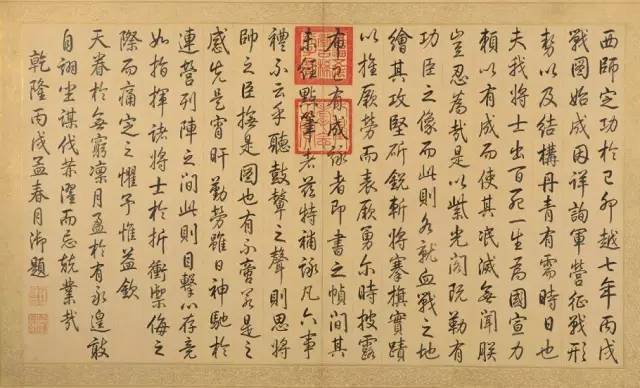 西師定功於己卯越七年丙戌
戰圖始成因詳詢軍營征戰形
勢以及結構丹青有需時日也
夫我將士出百死一生為國宣力
賴以有成而使其泯滅無聞朕
豈忍為哉是以紫光閣既勒有
功臣之像而此則各就血戰之地
繪其攻堅斫銳斬將搴旗實蹟
以旌厥勞而表厥勇尔時披露
布有成詠者即書之幀間其
未經點筆者茲特補詠凡六事
禮不云乎聽鼓鼙之聲則思將
帥之臣撫是圖也有不啻若是之
感先是宵旰勤勞雖日神馳於
連營列陣之間此則目擊心存竟
如指揮諸將士於折衝禦侮之
際而痛定之懼予惟益欽
天眷於無窮凜月盈於有永遑敢
自詡坐謀伐濯而忘兢業哉
乾隆丙戌孟春月御題